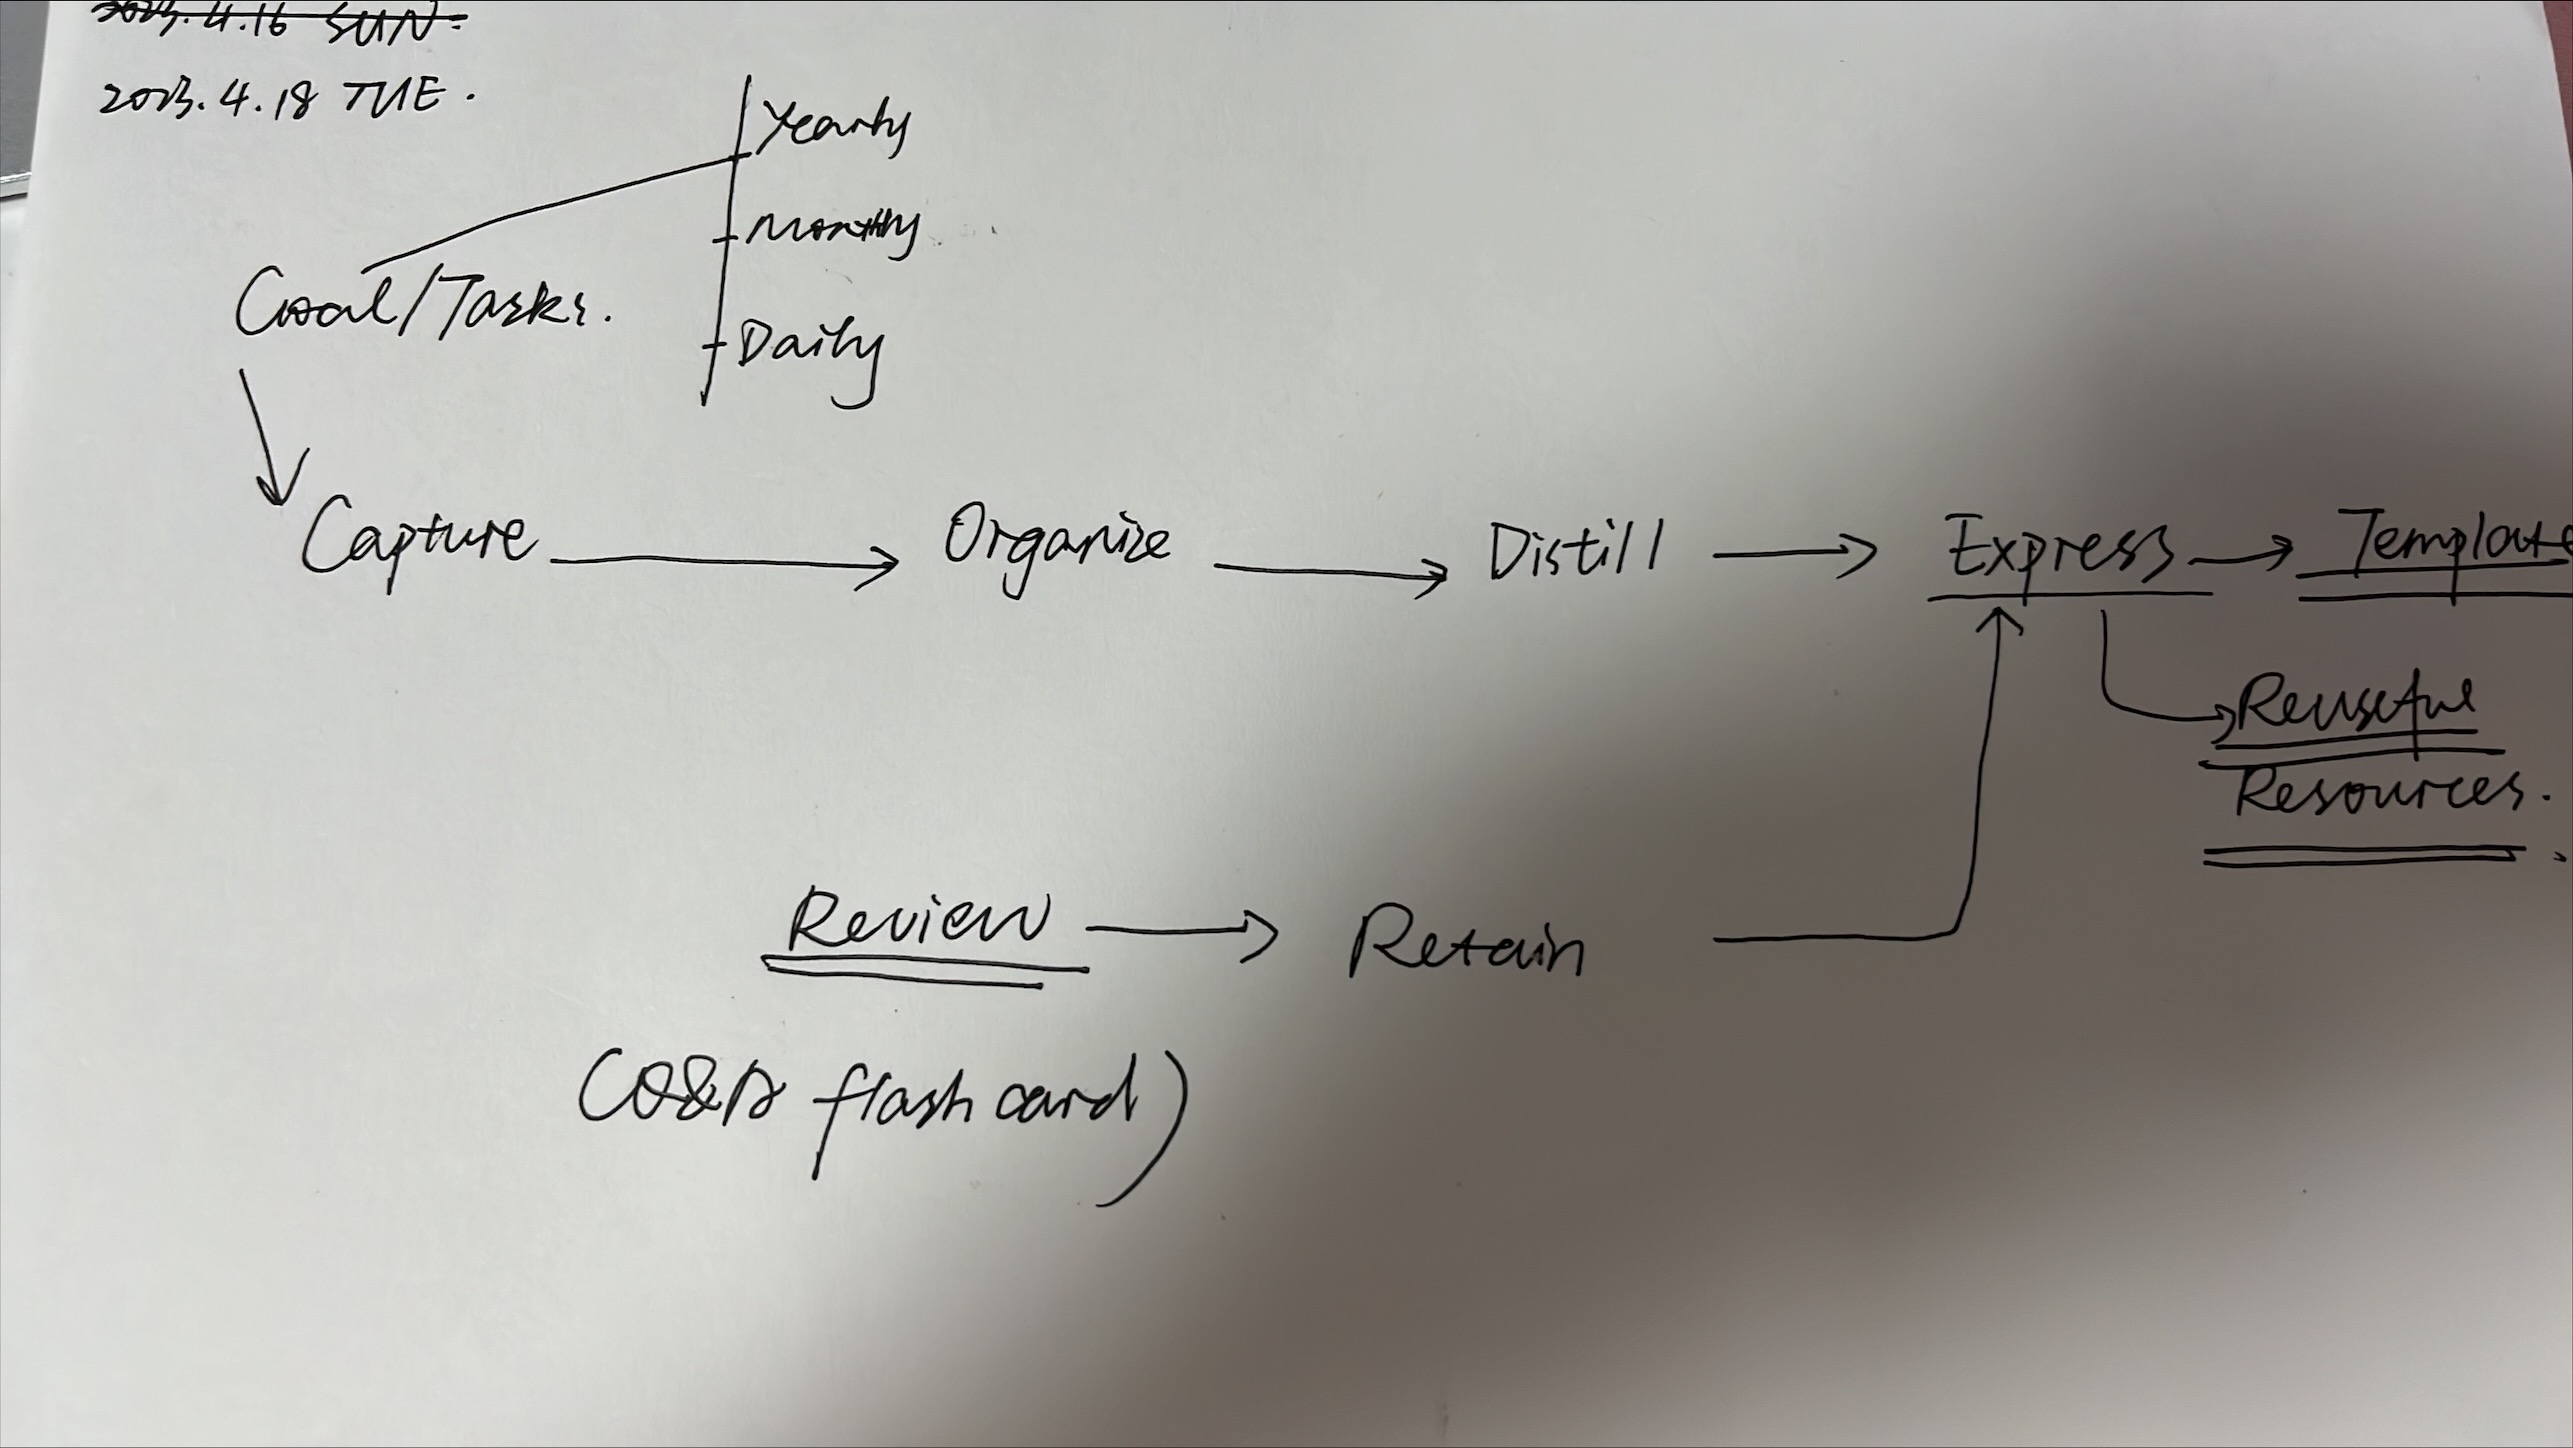 2023.4.16 SUN.
2023.4.18 TUE.
Yearly
Monthly
Daily
Goal/Tasks.
Capture Organize Distill Express Template
Reuseful
Resources.
Review Retain
(Q&A flash card)